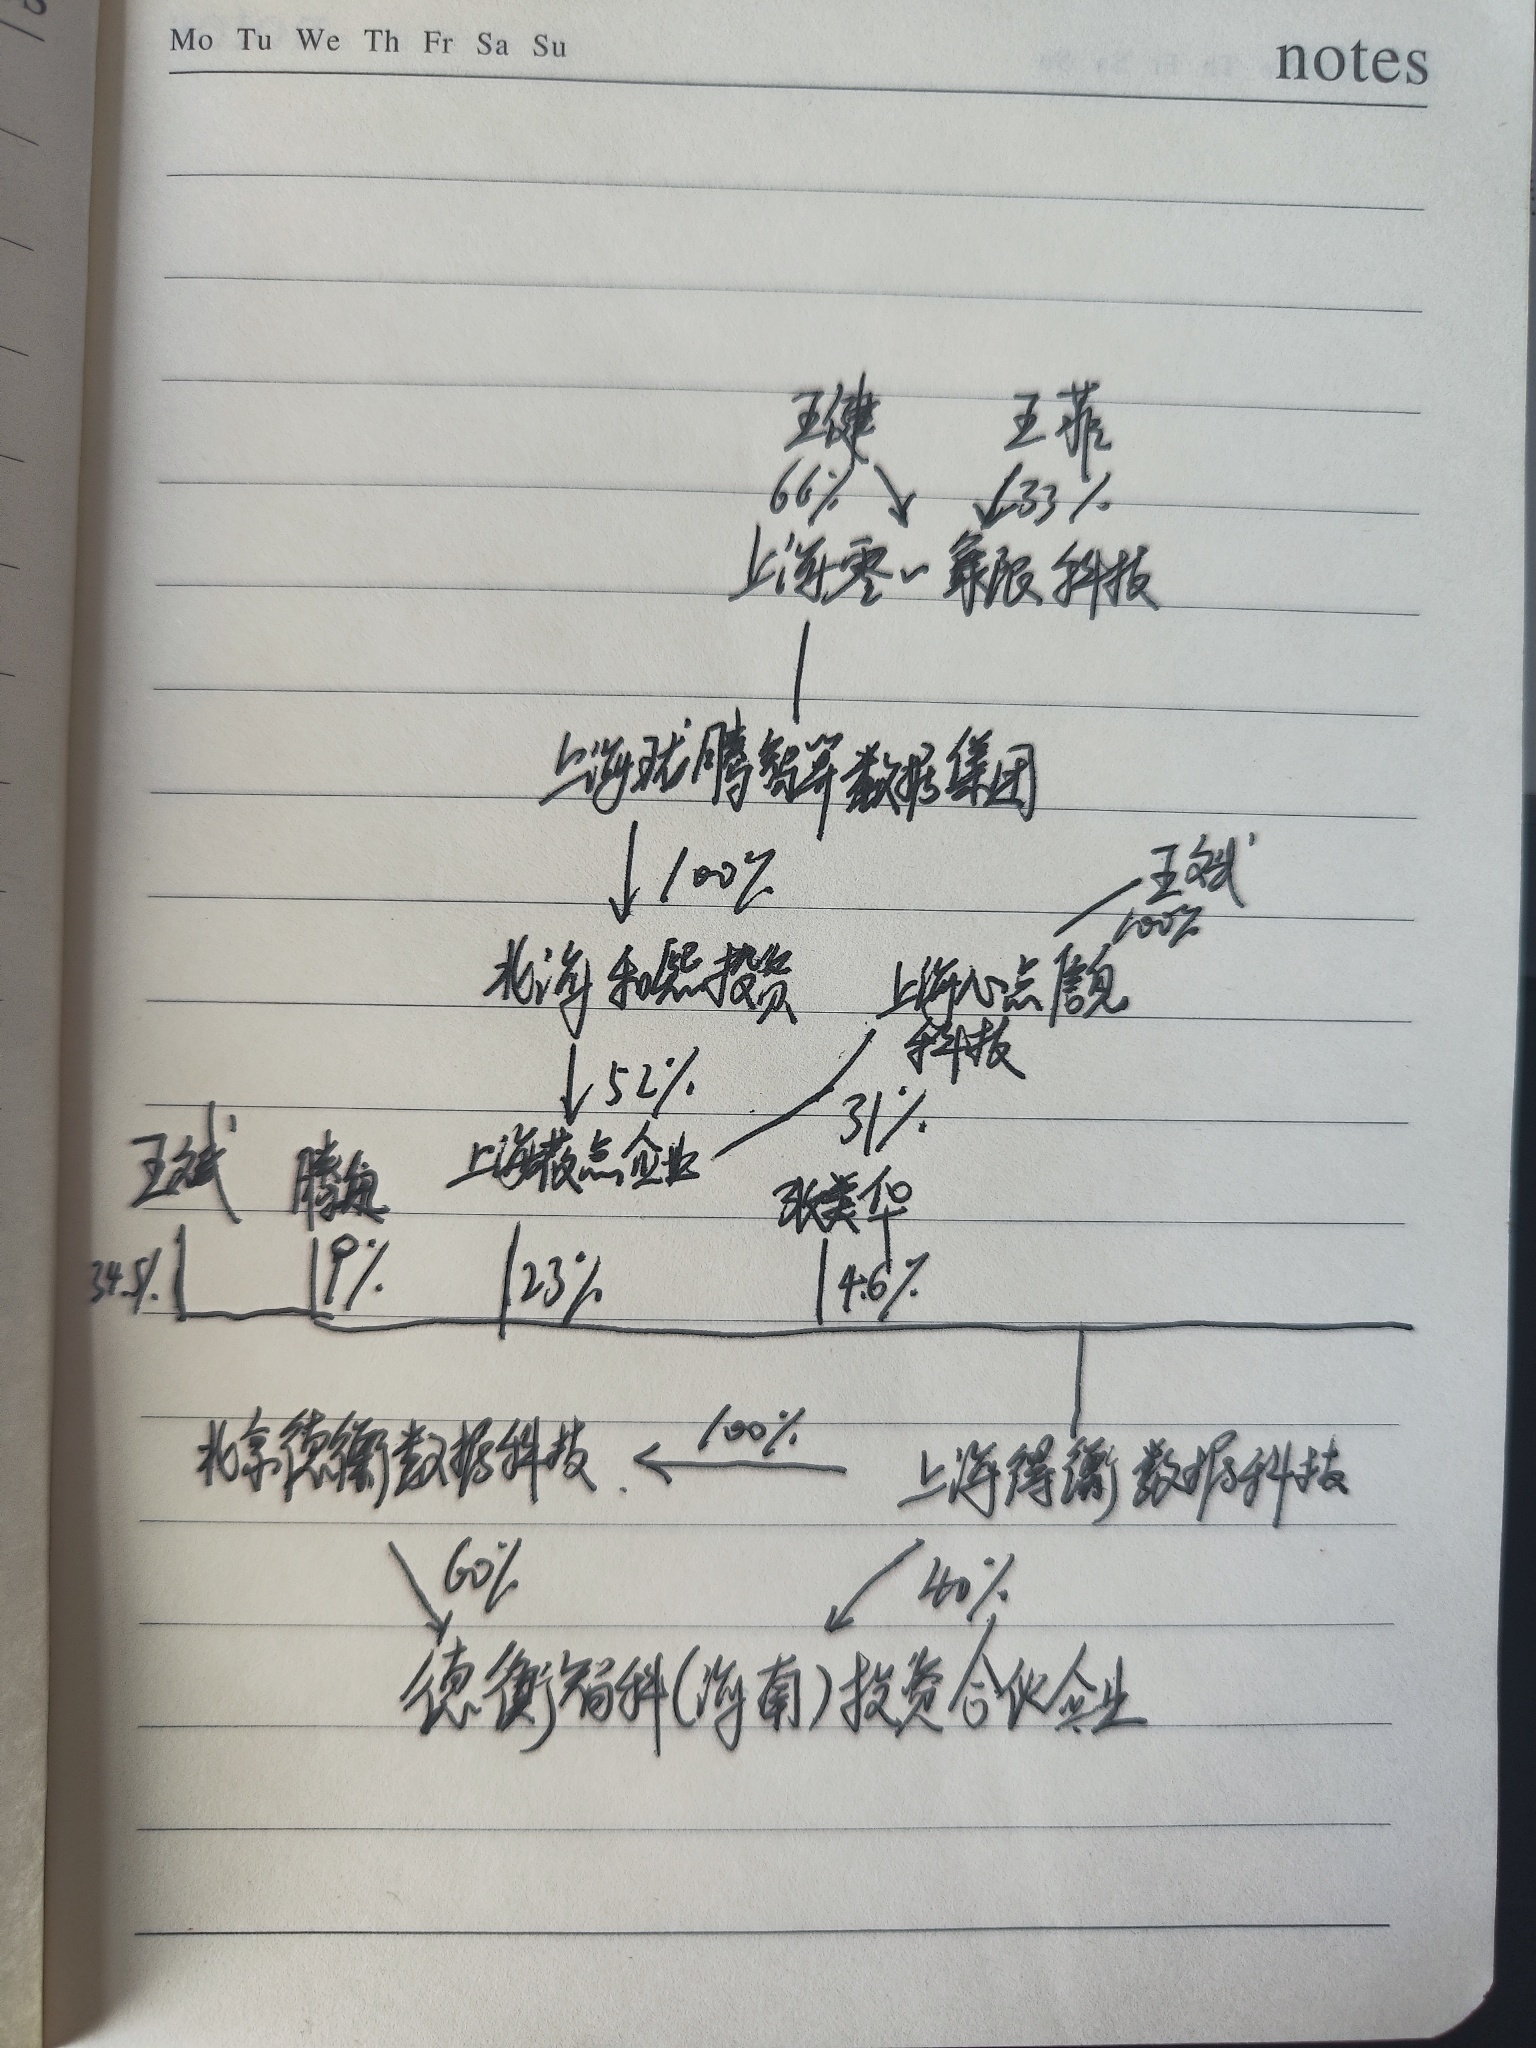 Mo Tu We Th Fr Sa Su
notes
王健 王菲
66% 33%
上海零一无限科技
上海珑腾智算数据集团
100%
王斌
100%
北海和熙投资
上海心点信息
科技
52%
31%
王斌 腾 上海 点企业
张美华
34.5% 9% 23% 4.6%
北京德衡数据科技 100% 上海得衡数据科技
60% 40%
德衡智科(海南)投资合伙企业